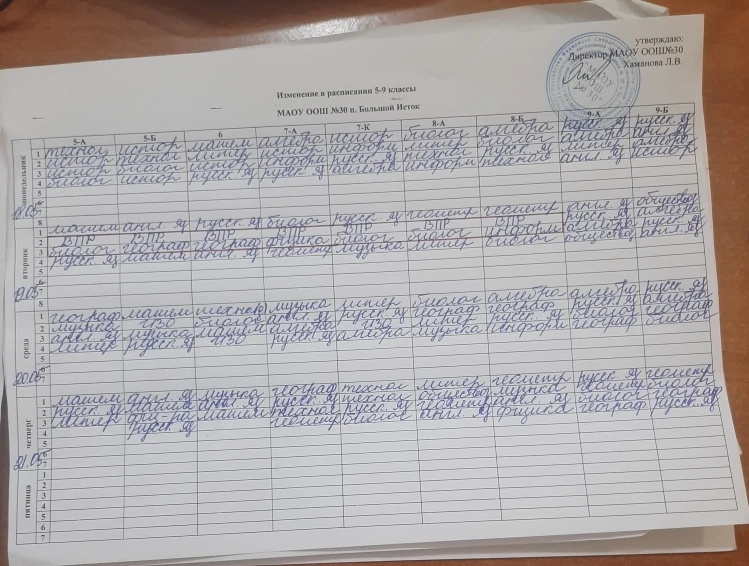 утверждаю:
Директор МАОУ ООШ№30
Хаманова Л.В.
Изменение в расписании 5-9 классы
МАОУ ООШ №30 п. Большой Исток
5-А 5-Б 6 7-А 7-К 8-А 8-Б 9-А 9-Б
понедельник
1 технол истор матем алгебра истор биолог алгебра русск. яз русск. яз
2 истор технол литер истор информ литер биолог
3 истор биолог истор информ русск. яз технол русск. яз литер алгебра
4 биолог истор русск. яз русск. яз алгебра информ технол англ. яз истор
5
6
18.05
8
вторник
1 матем англ. яз русск. яз биолог русск. яз геометр геометр англ. яз обществ
2 ВПР ВПР ВПР ВПР ВПР ВПР ВПР русск. яз алгебра
3 биолог географ географ физика биолог биолог информ алгебра русск. яз
4 русск. яз матем англ. яз геометр музыка литер биолог обществ англ. яз
5
6
19.05
8
среда
1 географ матем технол музыка литер биолог алгебра алгебра русск. яз
2 музыка ИЗО биолог англ. яз русск. яз географ географ русск. яз алгебра
3 англ. яз музыка матем алгебра ИЗО литер русск. яз биолог географ
4 литер русск. яз ИЗО русск. яз алгебра музыка информ географ биолог
5
6
20.05
четверг
1 матем англ. яз музыка географ технол литер геометр русск. яз геометр
2 русск. яз матем англ. яз русск. яз технол обществ музыка геометр биолог
3 литер матем технол русск. яз геометр англ. яз биолог географ
4 русск. яз геометр биолог англ. яз физика географ русск. яз
5
6
21.05
пятница
1
2
3
4
5
6
7